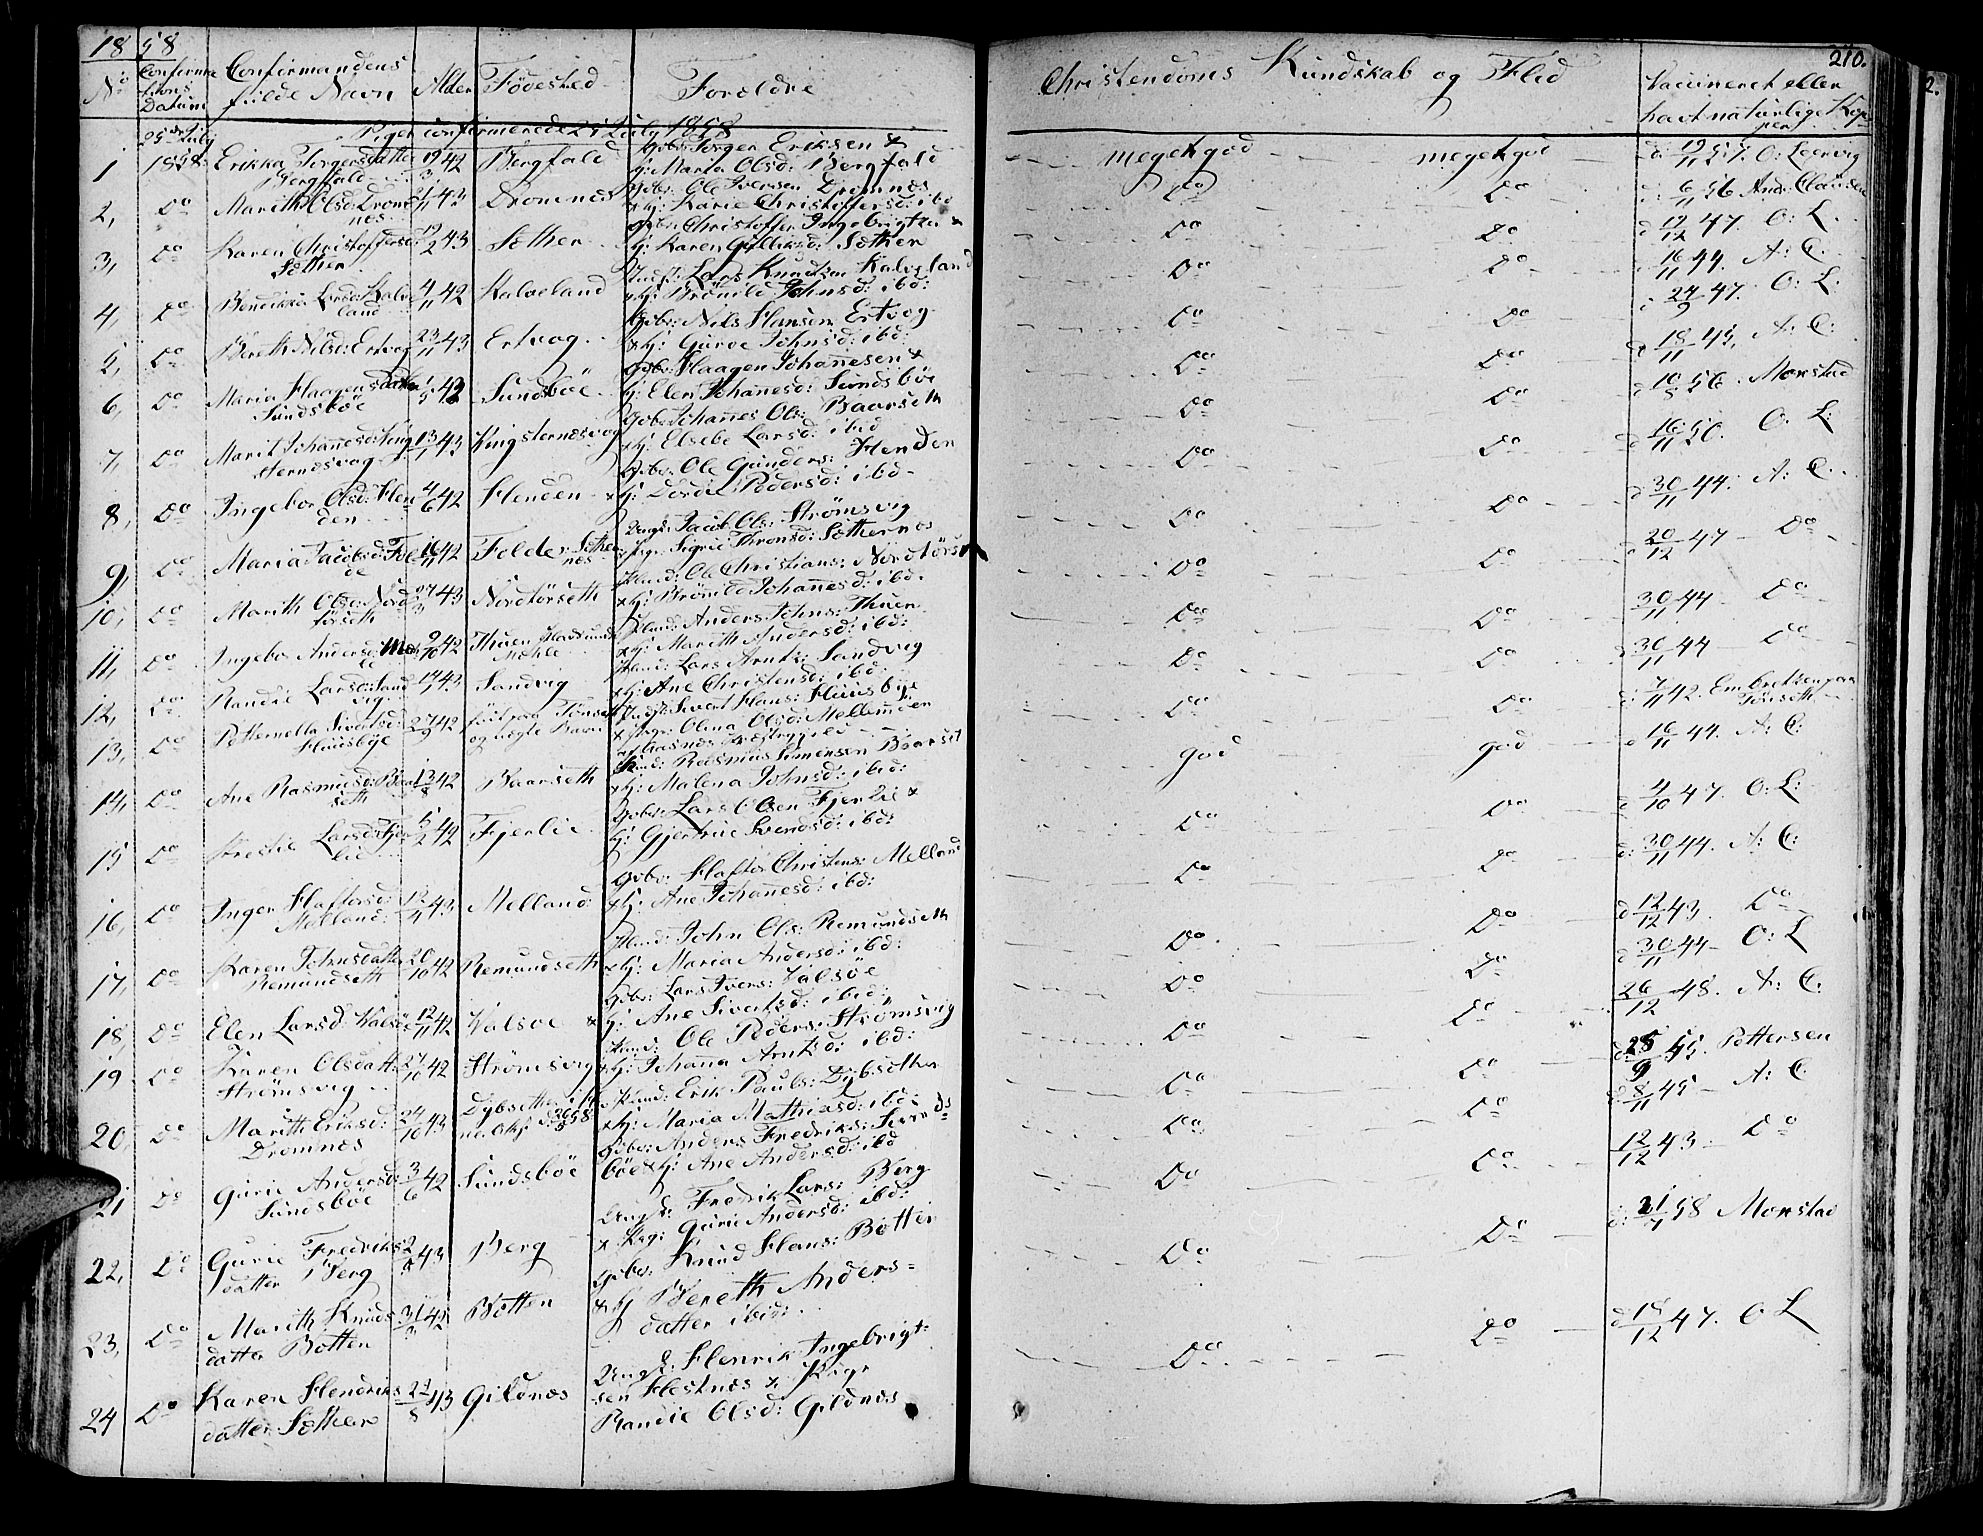 1858
210.
No
Confirmations Datum
Confirmandens fulde Navn
Alder
Fødested
Forældre
Christendoms Kundskab og Flid
Vaccineret eller havt naturlige Kopper
Piger confirmerede 25 July 1858
1 25de July 1858. Erikka Torgersdatter Bergfald 42 Bergfald Gbr: Torger Eriksen & K: Maria Olsd: Bergfald megetgod megetgod d: 19/11 57. O: Leervig
2, Do Marith Olsd: Dromnes 21/11 43 Dromnes Gbr: Ole Iversen Dromnes & K: Karie Christoffersd: ibd Do Do 6/11 56 And: Clausen
3, Do Karen Christoffersd: Sæther 19/2 43 Sæther Gbr: Christoffer Ingebrigtsen & K: Karen Gulliksd: Sæther Do Do d 12/12 47. O: L.
4, Do Bendikka Larsd: Kalveland 4/11 42 Kalveland Lars Knudsen Kalveland & K: Brönild Johnsd: ibd: Do Do d 16/11 44. A: C.
5, Do Bereth Nilsd: Ertvog 23/11 43 Ertvog Gbr: Nils Hansen Ertvog & K: Guroe Johnsd: ibd: Do Do d 24/9 47. O: L:
6, Do Maria Haagensdatter Sundsböe 42 Sundsböe Gbr: Haagen Johannesen & K: Elen Johannesd: Sundsböe Do Do d 18/11 43, A: C:
7, Do Marit Johannesd: Kingsternesvog 13/1 43 Kingsternesvog Gbr: Johannes Ols: Baarseth & K: Elsebe Larsd: ibid Do Do d 10/8 56. Monstad
8, Do Ingebor Olsd: Henden 4/6 42 Henden Gbr: Ole Gunders: Henden & K: Dordie Pedersd: ibd. Do Do d 16/11 50. O: L:
9, Do Maria Jacobsd: Folde 16/11 42 Folde Sæthernes Ungk: Jacob Ols: Strömsvig Pige: Sigrid Thronsd: Sæthernes Do Do d 30/11 44. A: C.
10, Do Marith Olsd: Nordtörseth 27/3 43 Nordtörseth Huusmd: Ole Christians: Nordtörs & K: Brönild Johannesd: ibd. Do Do d 20/12 47 Do
11, Do Ingebor Andersd: 9/10 42 Thuen Huusmd: Anders Johns: Thuen & K: Marith Andersd: ibd: Do Do 30/11 44 Do
12, Do Randie Larsd: Sandvig 14/1 43 Sandvig Huusmd: Lars Arnts: Sandvig & K: Ane Christensd: ibd. Do Do d 30/11 44 Do
13, Do Petternella Sivertsd: Huusbÿe 27/9 42 uægte Barn Sivert Hans: Huusbÿe & Pige: Olina Olsd: Mellemden Do Do d: 7/11 42. Embretsen paa Törseth
14, Do Ane Rasmusd: Baarseth 13/8 42 Baarseth Huusmd: Rasmus Simensen Baarset & K: Malena Johnsd: ibd: god god d 16/11 44. A: C:
15 Do Larsd: Fjerlie 42 Fjerlie Gbr: Lars Olsen Fjerlie & K: Gjertrue Svendsd: ibd: Do Do d 4/10 47. O: L:
16, Do Inger Haftorsd: Melland 12/4 43 Melland Gbr: Haftor Christens: Melland & K: Ane Johannesd: ibd: Do Do d: 30/11 44. A: C:
17, Do Karen Johnsdatter Remundseth 20/10 42 Remundseth Huusmd: John Ols: Remundseth & K: Maria Andersd: ibd: Do Do d 12/12 43. Do
18, Do Elen Larsd: Valsöe 12/11 42 Valsöe Gbr: Lars Ivers: Valsöe & K: Ane Sivertsd: ibid: Do Do d 30/11 44 O: L
19 Do Karen Olsdatt: Strömsvig 27/10 42 Strömsvig Huusmd: Ole Peders: Strömsvig & K: Johanna Arntsd: ibd: Do Do 26/12 48. A: C:
20, Do Marith Eriksd: Dromnes 24/10 43 Dybsæther Huusmd: Erik Pauls: Dybsæther & K: Maria Mathiasd: ibd: Do Do d 25/9 45. Pettersen
21 Do Gurie Andersd: Sundsböe 3/6 42 Sundsböe Gbr: Anders Fredriks: Sundsböe & K: Ane Andersd: ibd Do Do d 8/11 45 A: C.
22, Do Gurie Fredriksdatter Berg 43 Berg Ungk: Fredrik Lars: Berg & Pige: Gurie Andersd: ibd: Do Do 12/12 43 Do
23, Do Marith Knudsdatter Botten 42 Botten Gbr: Knud Hans: Botten & K Bereth Andersdatter ibid: Do Do d: 21/7 58 Monstad
24 Do Karen Hendriksdatter Sæther 43 Gildnes Ungk: Henrik Ingebrigtsen Hestnes & Pige Randie Olsd: Gildnes Do Do d 18/12 47. O L